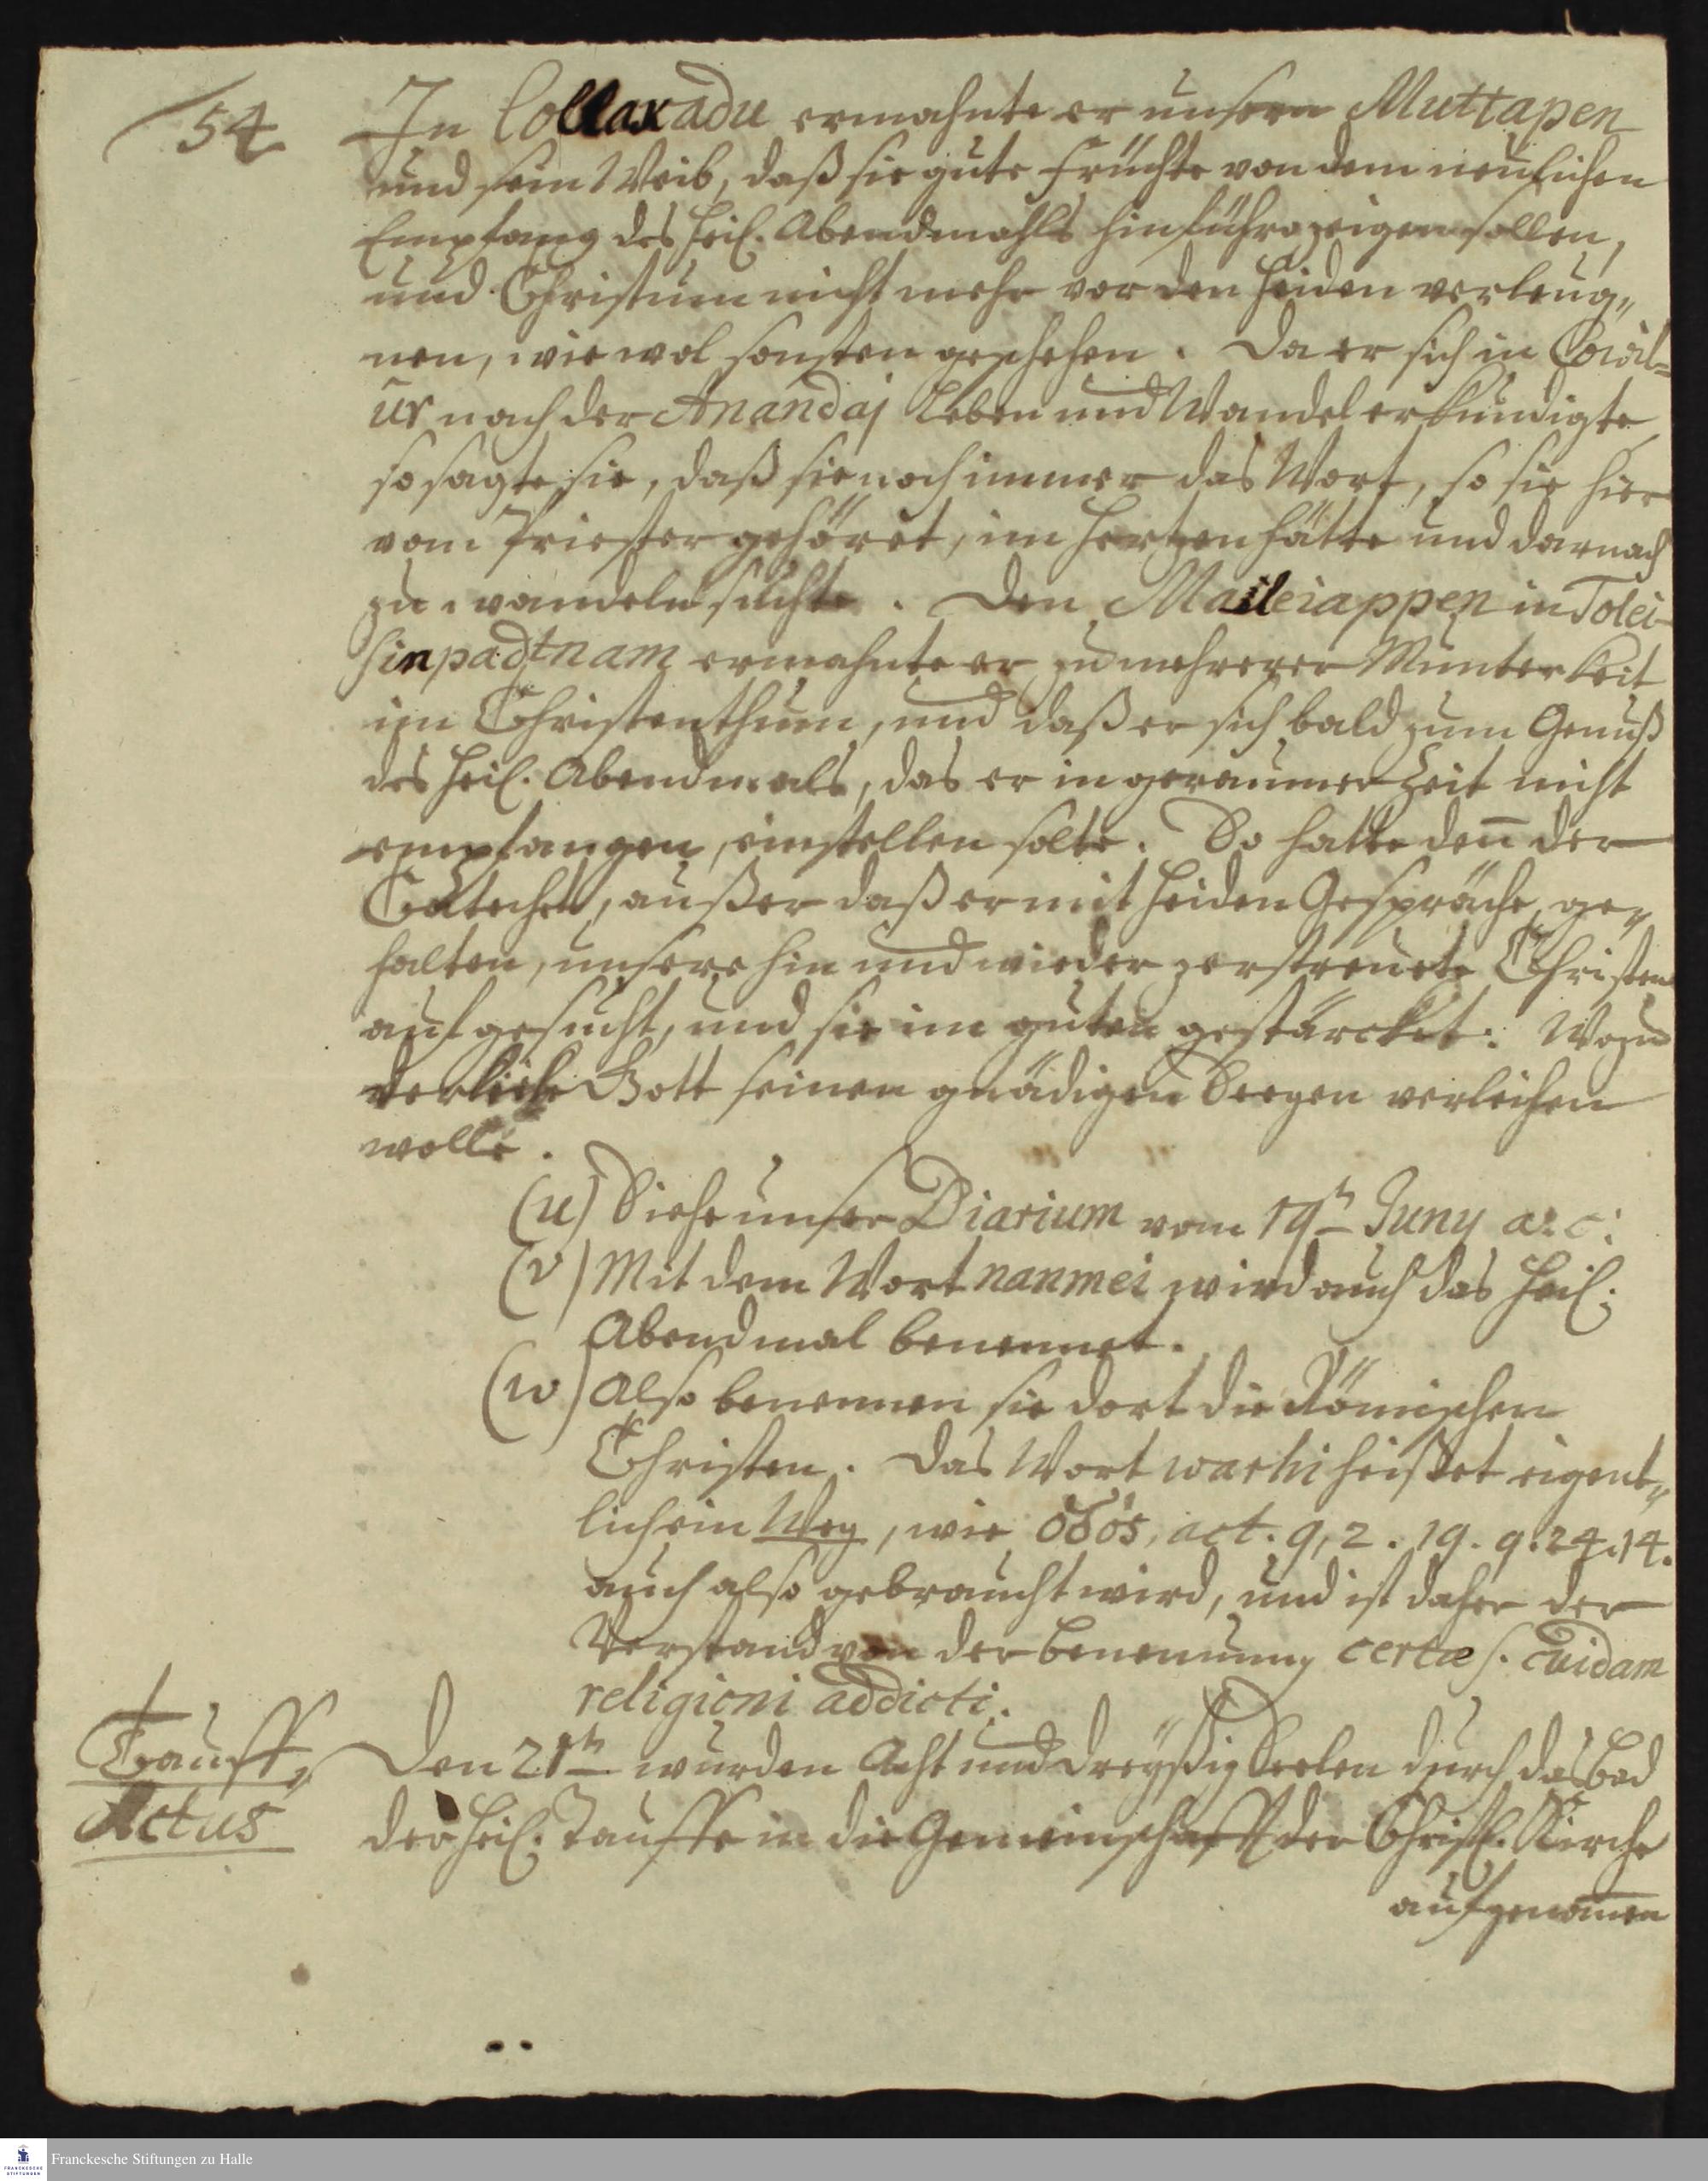 54
In Collaxadu ermahnte er unsern Muttapen
und sein Weib, daß sie gute Früchte von dem neulichen
Empfang des Heil. Abendmahls hinführo zeigen sollen,
und Christum nicht mehr vor den Heiden verleug„
nen, wie wol sonsten geschehen. Da er sich in Coidl=
ur nach der Anandaj Leben und Wandel erkundigte,
so sagte sie, daß sie noch immer das Wort, so sie hier
vom Priester gehöret, im Hertzen hätte und darnach
zu wandeln suchte. Den Maileiappen in Tolei-
sinpadtnam ermahnte er zu mehrerer Munterkeit
im Christenthum, und daß er sich bald zum Genuß
des Heil. Abendmals, das er in geraumer Zeit nicht
empfangen, einstellen solte. So hatte den̅ der
Catechet, außer daß er mit Heiden Gespräche ge„
halten, unsere hin und wieder zerstreuete Christen
aufgesucht, und sie im guten gestärcket. Wozu
der liebe Gott seinen gnädigen Seegen verleihen
wolle.
(u) Siehe unser Diarium vom 19n Juny a. c.
(v) Mit dem Wort nanmei wird auch das Heil.
Abendmal benennet.
(w) Also benennen sie dort die Römischen
Christen. Das Wort warhi heisset eigent„
lich ein Weg, wie ὁδός, act. 9, 2. 19. 9. 24. 14.
auch also gebraucht wird, und ist daher der
Verstand von der Benennung certæ s. cuidam
religioni addicti.
Tauff„
Actus
Den 21n wurden Acht und dreyßig Seelen durch das Bad
der Heil. Tauffe in die Gemeinschafft der Christl. Kirche
aufgenom̅en
Franckesche Stiftungen zu Halle
FRANCKESCHE
STIFTUNGEN